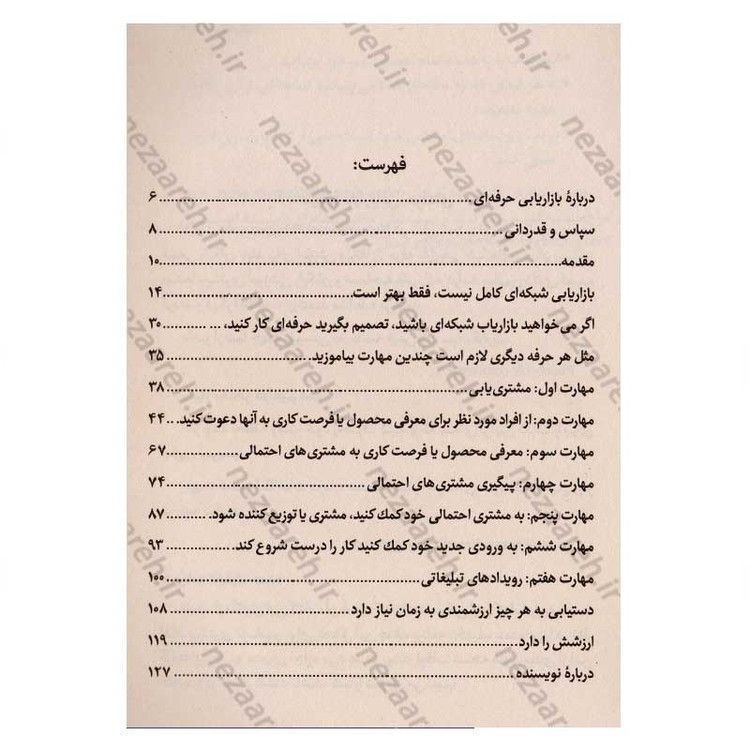 فهرست:
دربارهٔ بازاریابی حرفه‌ای ........ ۶
سپاس و قدردانی ........ ۸
مقدمه ........ ۱۰
بازاریابی شبکه‌ای کامل نیست، فقط بهتر است ........ ۱۴
اگر می‌خواهید بازاریاب شبکه‌ای باشید، تصمیم بگیرید حرفه‌ای کار کنید، ... ........ ۳۰
مثل هر حرفه دیگری لازم است چندین مهارت بیاموزید. ........ ۳۵
مهارت اول: مشتری‌یابی ........ ۳۸
مهارت دوم: از افراد مورد نظر برای معرفی محصول یا فرصت کاری به آنها دعوت کنید. .. ۴۴
مهارت سوم: معرفی محصول یا فرصت کاری به مشتری‌های احتمالی ........ ۶۷
مهارت چهارم: پیگیری مشتری‌های احتمالی ........ ۷۴
مهارت پنجم: به مشتری احتمالی خود کمك کنید، مشتری یا توزیع کننده شود. ........ ۸۷
مهارت ششم: به ورودی جدید خود کمك کنید کار را درست شروع کند. ........ ۹۳
مهارت هفتم: رویدادهای تبلیغاتی ........ ۱۰۰
دستیابی به هر چیز ارزشمندی به زمان نیاز دارد ........ ۱۰۸
ارزشش را دارد ........ ۱۱۹
دربارهٔ نویسنده ........ ۱۲۷
nezaareh.ir